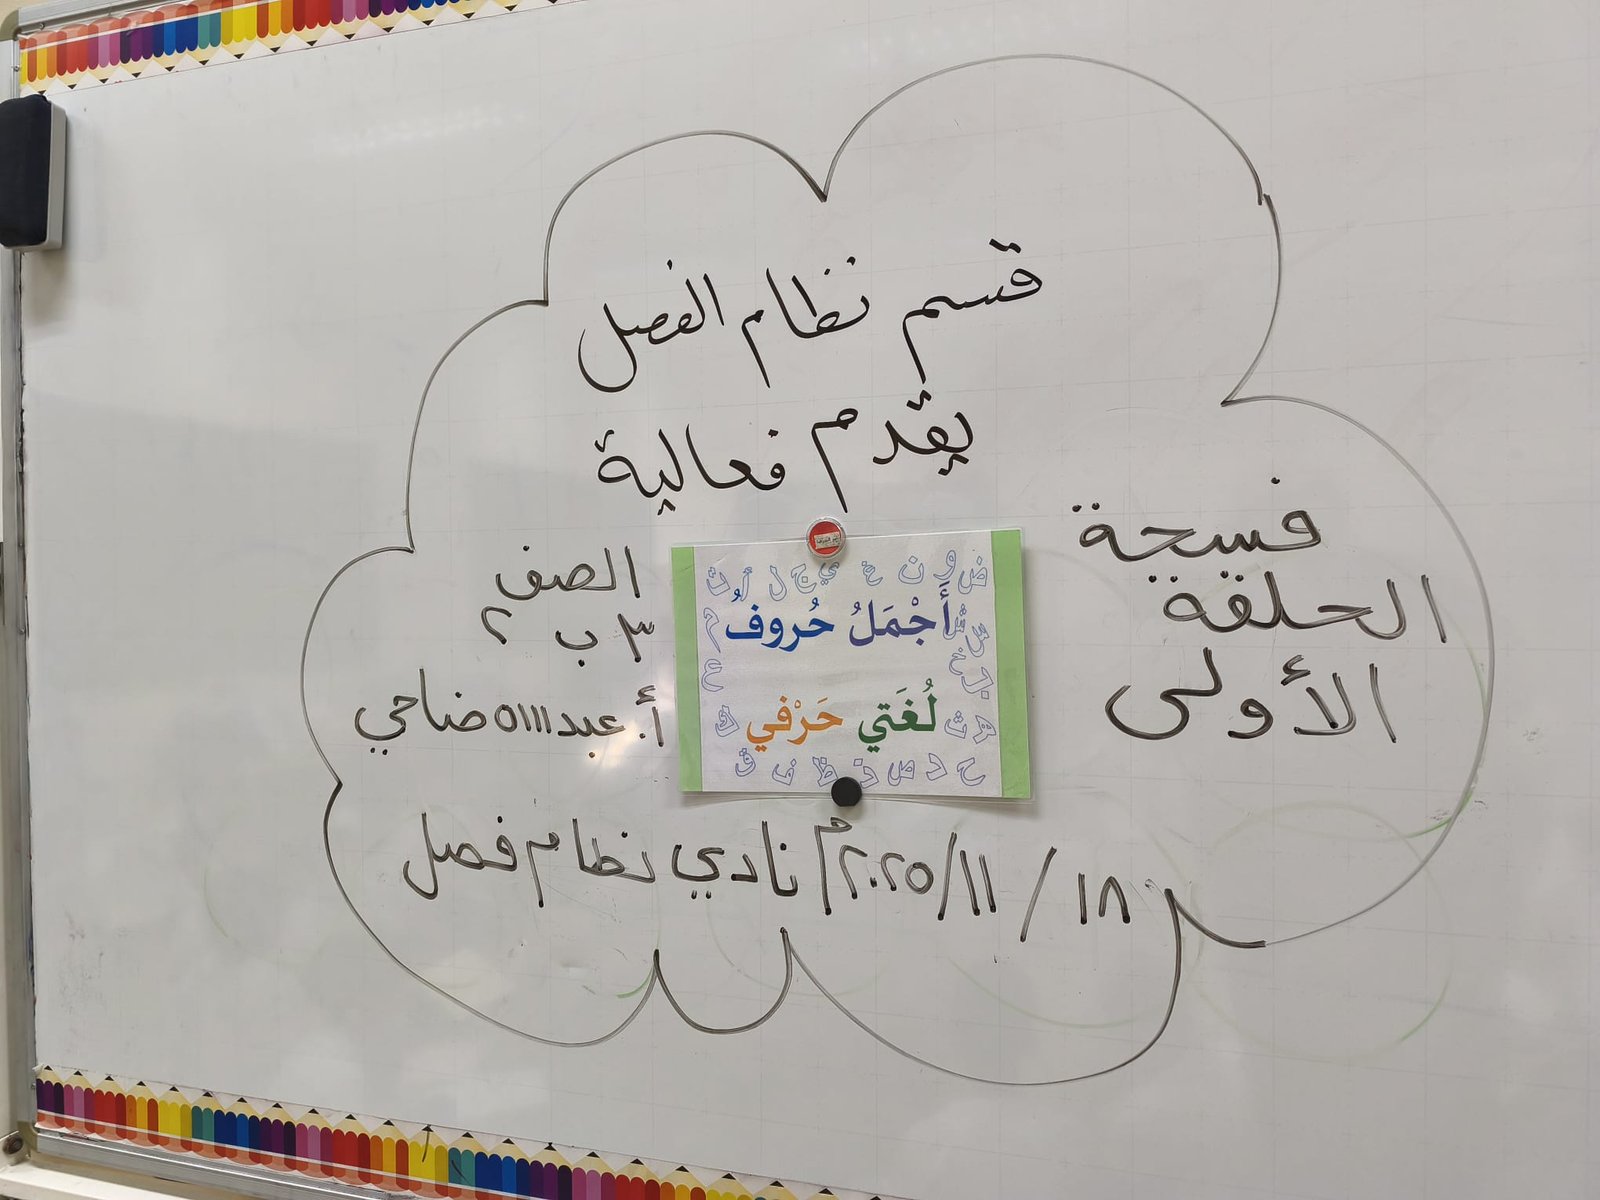 قسم نظام الفصل
يقدم فعالية
فسحة
الحلقة
الأولى
أَجْمَلُ حُروفُ
لُغَتي حَرْفي
الصف
٣ ب ٢
أ. عبدالله ضاحي
١٨ / ١١/ ٢٠٢٥م نادي نظام فصل